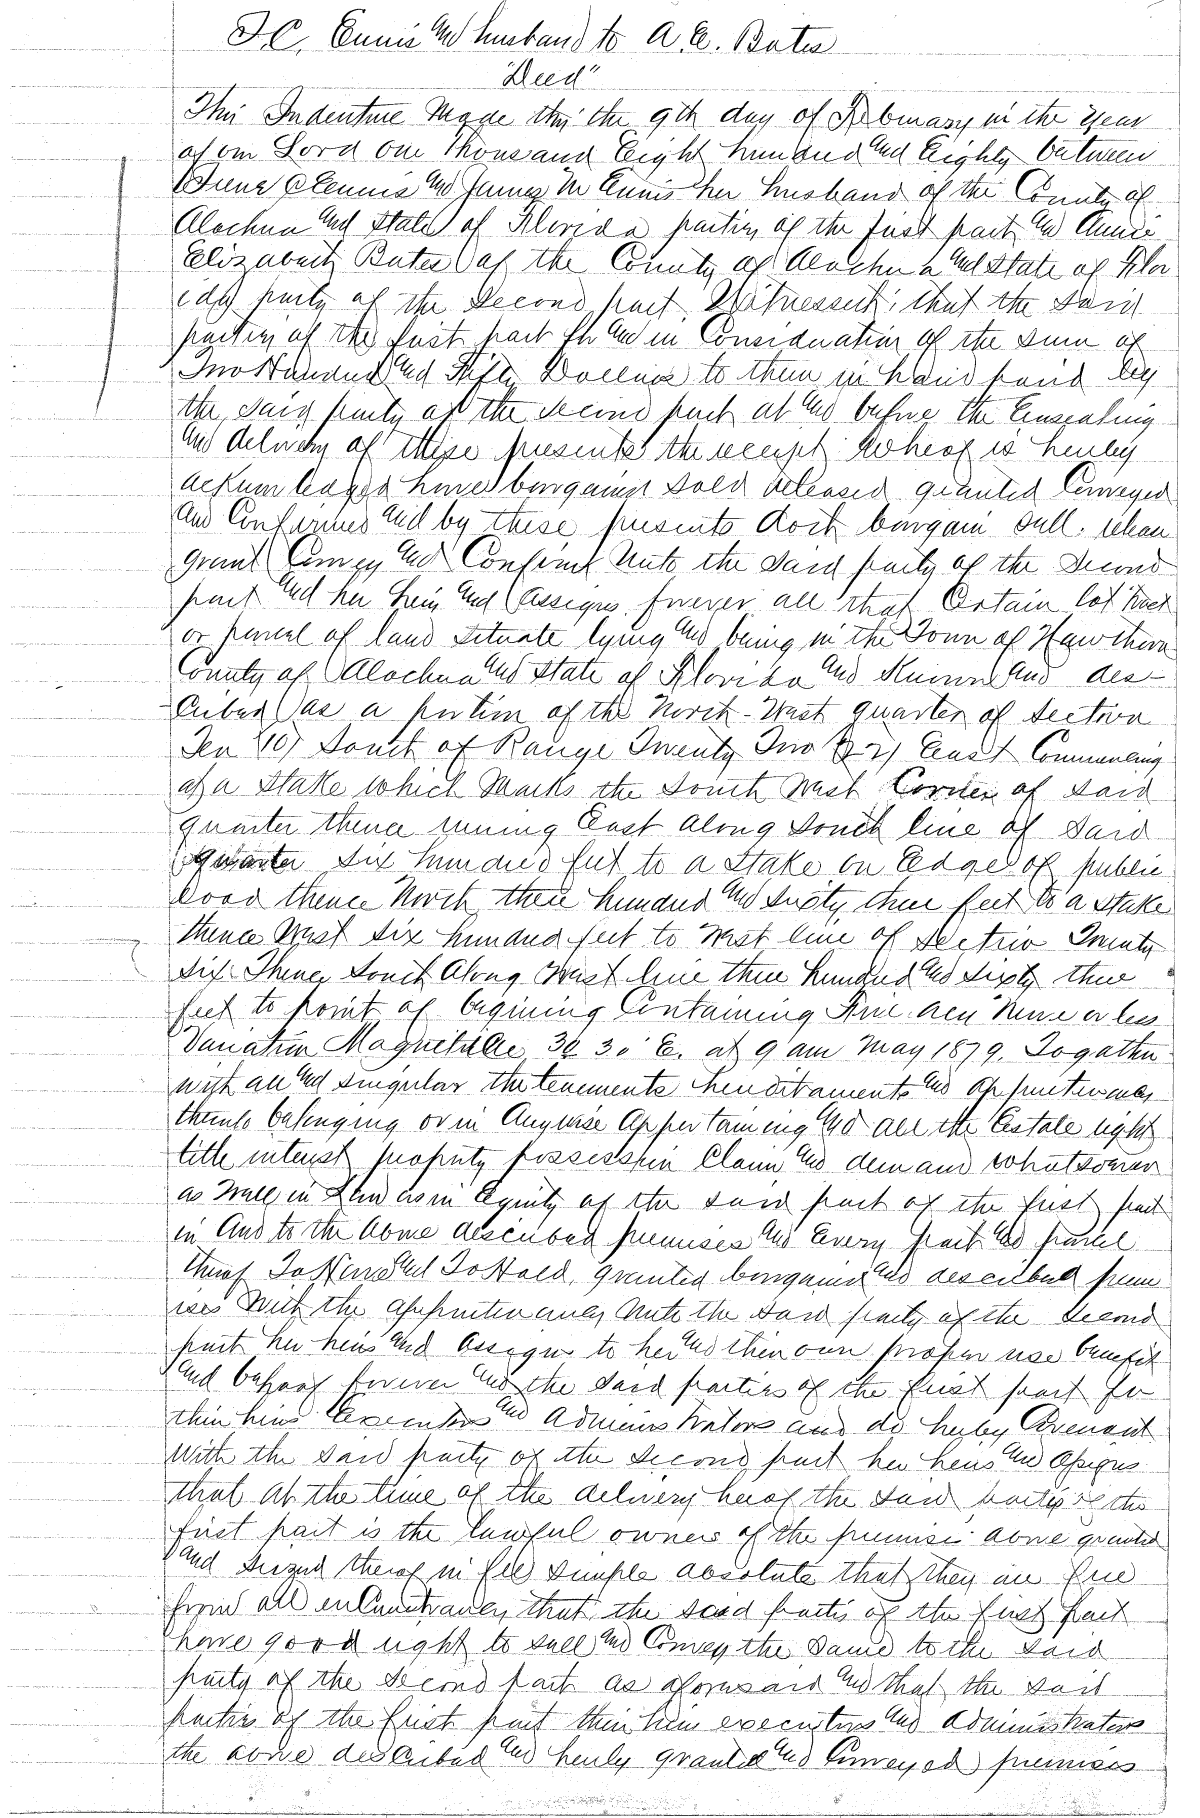 J. C. Ennis and husband to A. E. Bates
"Deed"
This Indenture Made this the 9th day of February in the Year
of our Lord one thousand Eight hundred and Eighty between
June C Ennis and James M Ennis her husband of the County of
Alachua and State of Florida parties of the first part and Annie
Elizabeth Bates of the County of Alachua and State of Flor
ida party of the Second part Witnesseth; that the Said
parties of the first part for and in Consideration of the sum of
Two Hundred and Fifty Dollars to them in hand paid by
the said party of the second part at and before the Ensealing
and delivery of these presents the receipt whereof is hereby
acknowledged have bargained Sold released granted Conveyed
and Confirmed and by these presents doth bargain sell, release
grant Convey and Confirm Unto the Said party of the Second
part and her heirs and Assigns forever all that Certain lot tract
or parcel of land situate lying and being in the Town of Hawthorn
County of Alachua and State of Florida and Known and des-
cribed as a portion of the North-West quarter of Section
Ten (10) South of Range Twenty Two (22) East Commencing
at a Stake which Marks the South West Corner of Said
quarter thence runing East along South line of Said
quarter Six hundred feet to a Stake on Edge of public
Road thence North three hundred and Sixty three feet to a Stake
thence West Six hundred feet to West line of Section Twenty
Six Thence South Along West line three hundred and Sixty three
feet to point of begining Containing Five acres More or less
Variation Magnetic 3° 30' E. at 9 am May 1879, Togather
with all and singular the tenements hereditaments and appurtenances
thereto belonging or in Anywise Appertaining and all the Estate right
title interest property possession Claim and demand whatsoever
as Well in Law as in Equity of the said part of the first part
in And to the above described premises and Every part and parcel
thereof To Have and To Hold, granted bargained and described prem
ises With the appurtenances Unto the said party of the Second
part her heirs and Assigns to her and their own proper use benefit
and behoof forever and the Said parties of the first part for
their heirs Executors and Administrators and do hereby Covenant
With the Said party of the Second part her heirs and Assigns
that at the time of the delivery hereof the Said parties of the
first part is the lawful owners of the premises above granted
and Seized thereof in fee Simple absolute that they are free
from all enCumbrances, that the Said parties of the first part
have good right to sell and Convey the Same to the Said
party of the Second part as aforesaid and that the Said
parties of the first part their heirs executors and administrators
the above described and hereby granted and Conveyed premises